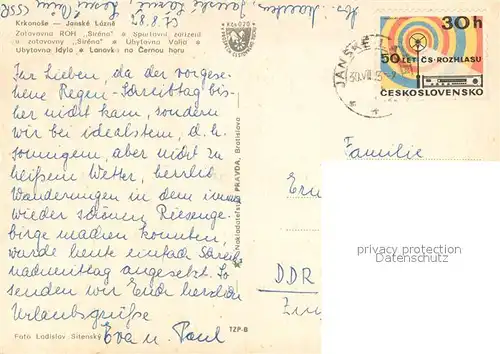 Krkonoše — Janské Lázně
Zotavovna ROH „Siréna" ● Sportovní zařízení
u zotavovny „Siréna" ● Ubytovna Vatia ●
Ubytovna Idyla ● Lanovka na Černou horu
28.8.73
ČSSR
Ihr Lieben, da der vorgese-
hene Regen-Schreibtag bis-
her nicht kam, sondern
wir bei idealstem, d. h.
sonnigem, aber nicht zu
heißem Wetter, herrl.
Wanderungen in dem immer
wieder schönen Riesenge-
birge machen konnten,
wurde heute einfach Schreib-
nachmittag angesetzt. So
senden wir Euch herzlichen
Urlaubsgrüße
Eva u. Paul
Foto Ladislav Sitenský
TZP-B
Nakladatelství PRAVDA, Bratislava
30h
50 LET ČS. ROZHLASU
ČESKOSLOVENSKO
JANSKÉ
30.VIII.
Familie
DDR
privacy protection
Datenschutz